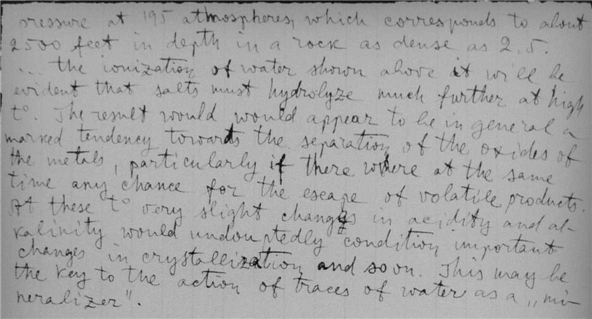 pressure at 195 atmospheres, which corresponds to about
2500 feet in depth in a rock as dense as 2.5.
... the ionization of water shown above it will be
evident that salts must hydrolyze much further at high
t°. The result would would appear to be in general a
marked tendency towards the separation of the oxides of
the metals, particularly if there where at the same
time any chance for the escape of volatile products.
At these t° very slight changes in acidity and al-
kalinity would undouptedly condition important
changes in crystallization and so on. This may be
the key to the action of traces of water as a „mi-
neralizer".